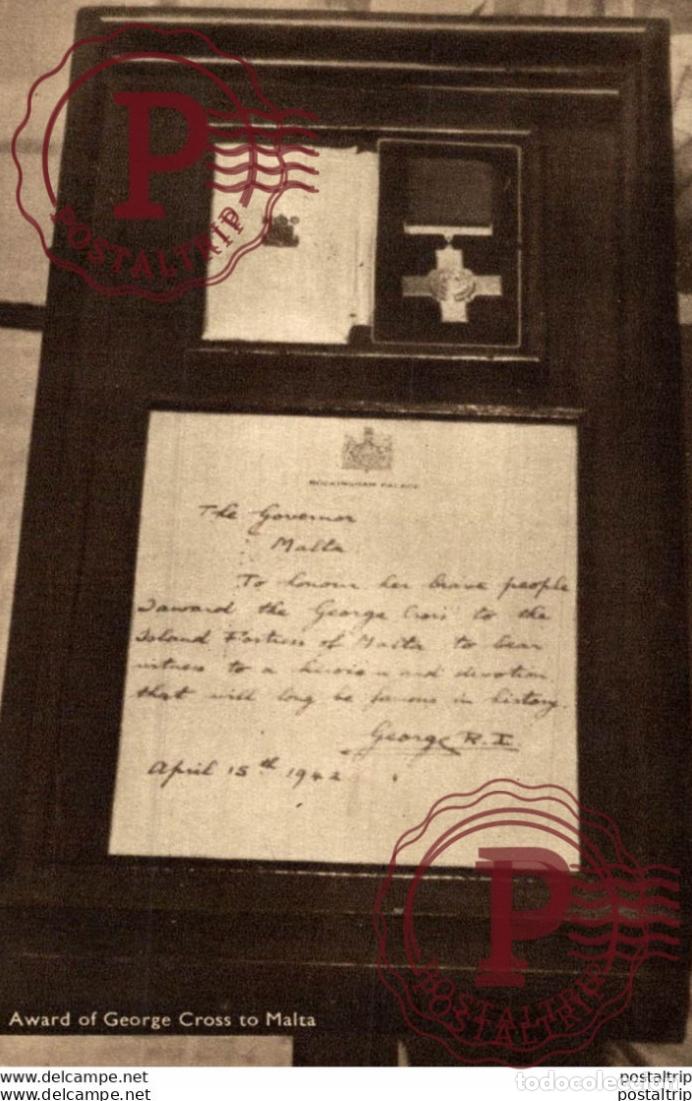 P
POSTALTRIP
BUCKINGHAM PALACE
The Governor
Malta
To honour her brave people
I award the George Cross to the
Island Fortress of Malta to bear
witness to a heroism and devotion
that will long be famous in history.
George R.I.
April 15th 1942
P
POSTALTRIP
Award of George Cross to Malta
www.delcampe.net
postaltrip
todocoleccion
www.delcampe.net
postaltrip